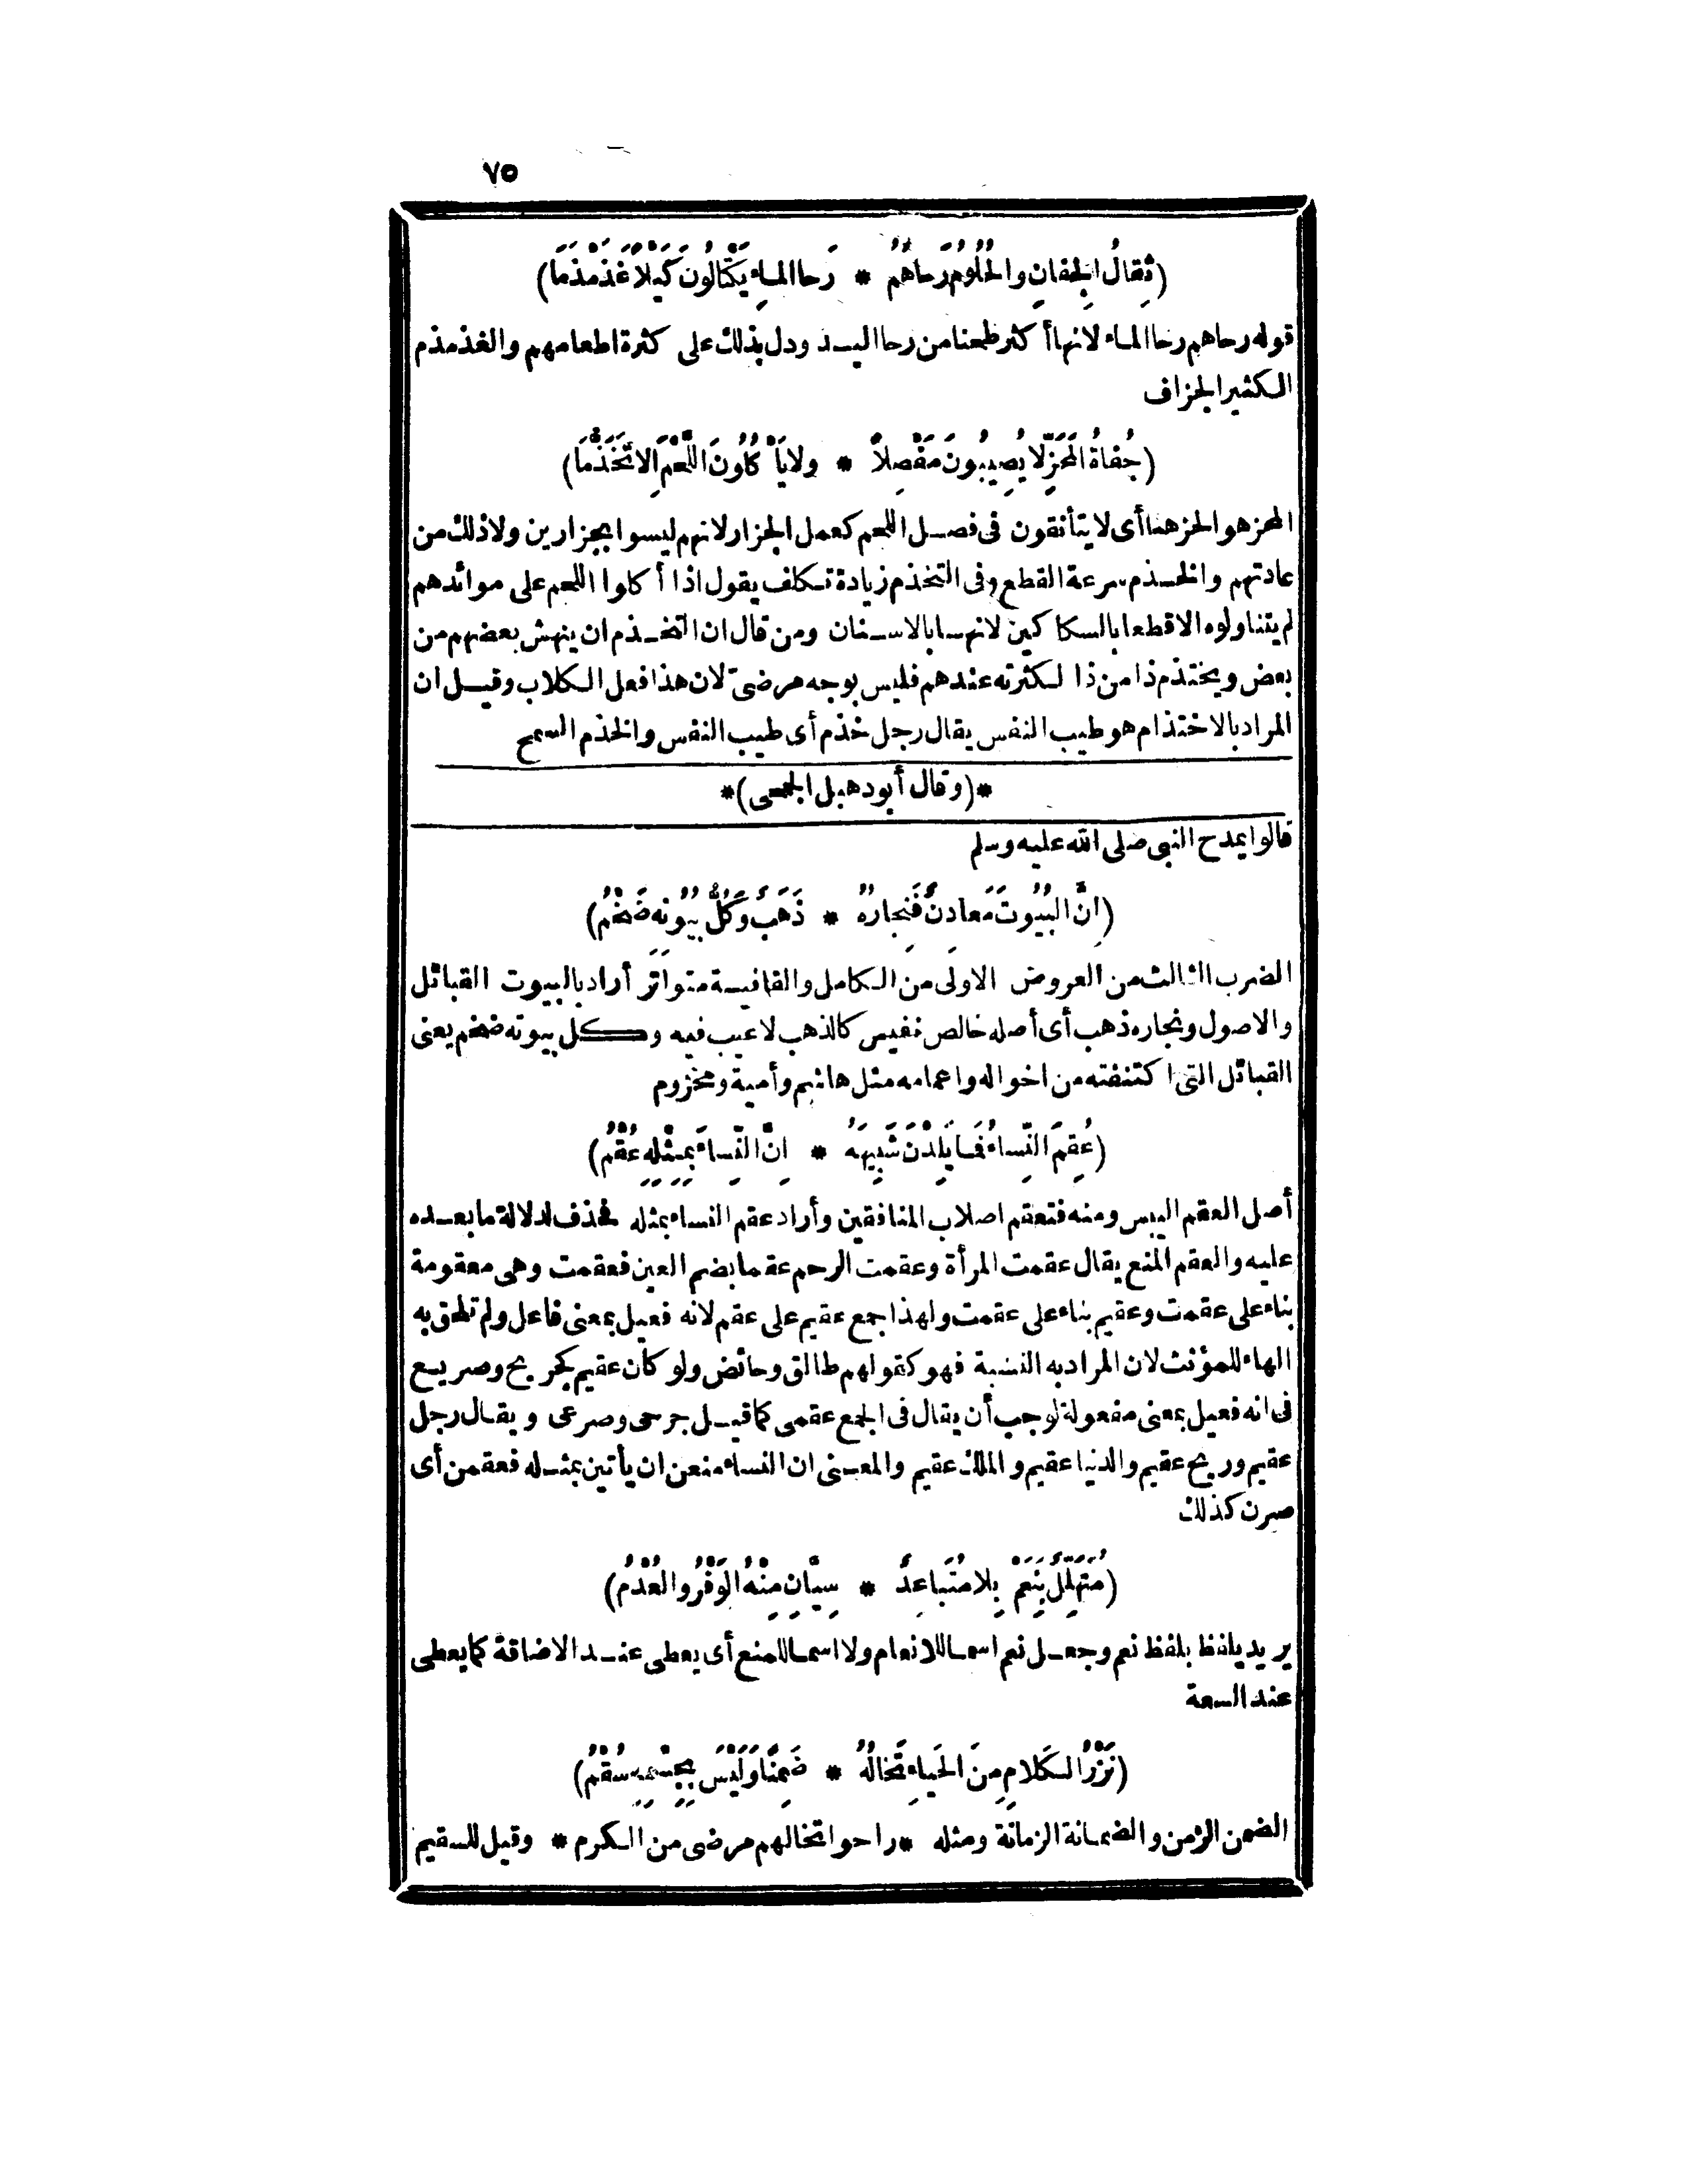 ٧٥
(ثِقالُ الجِفانِ والحُلُومُ رَحاهُمُ * رَحا الماءِ يَكْتالُونَ كَيْلاً غَذَمْذَمَا)
قوله رحاهم رحا الماء لانها أكثر طحنا من رحا اليد ودل بذلك على كثرة اطعامهم والغذمذم
الكثير الجزاف
(جُفاةُ المَحَزِّ لا يُصِيبُونَ مَفْصِلاً * ولا يَأْكُلُونَ اللَّحْمَ إلا تَخَذُّمَا)
المحز هو الحز ههنا أى لا يتأنقون فى فصل اللحم كعمل الجزار لانهم ليسوا بجزارين ولا ذلك من
عادتهم والخذم سرعة القطع وفى التخذم زيادة تكلف يقول اذا أكلوا اللحم على موائدهم
لم يتناولوه الا قطعا بالسكاكين لا نهسا بالاسنان ومن قال ان التخذم ان ينهش بعضهم من
بعض ويختذم ذا من ذا لكثرته عندهم فليس بوجه مرضىّ لان هذا فعل الكلاب وقيل ان
المراد بالاختذام هو طيب النفس يقال رجل خذم أى طيب النفس والخذم السمح
*(وقال أبو دهبل الجمحى)*
قالوا يمدح النبى صلى الله عليه وسلم
(اِنَّ البُيُوتَ مَعادِنٌ فَنِجارُهُ * ذَهَبٌ وَكُلُّ بُيُوتِهِ ضَخْمُ)
الضرب الثالث من العروض الاولَى من الكامل والقافية متواتَر أراد بالبيوت القبائل
والاصول ونجاره ذهب أى أصله خالص نفيس كالذهب لا عيب فيه وكل بيوته ضخم يعنى
القبائل التى اكتنفته من اخواله واعمامه مثل هاشم وأمية ومخزوم
(عُقِمَ النِّساءُ فَما يَلِدْنَ شَبِيهَهُ * اِنَّ النِّساءَ بِمِثْلِهِ عُقْمُ)
أصل العقم اليبس ومنه فتعقم اصلاب المنافقين وأراد عقم النساء بمثله فحذف لدلالة ما بعده
عليه والعقم المنع يقال عقمت المرأة وعقمت الرحم عقما بضم العين فعقمت وهى معقومة
بناء على عقمت وعقيم بناء على عقمت ولهذا جمع عقيم على عقم لانه فعيل بمعنى فاعل ولم تلحق به
الهاء للمؤنث لان المراد به النسبة فهو كقولهم طالق وحائض ولو كان عقيم كجريح وصريع
فى انه فعيل بمعنى مفعولة لوجب أن يقال فى الجمع عقمى كما قيل جرحى وصرعى ويقال رجل
عقيم وريح عقيم والدنيا عقيم والملك عقيم والمعنى ان النساء منعن ان يأتين بمثله فعقمن أى
صرن كذلك
(مُتَهَلِّلٌ بِنَعَمْ بِلا مُتَباعِدٌ * سِيَّانِ مِنْهُ الوَفْرُ والعُدْمُ)
يريد يلفظ بلفظ نعم وجعل نعم اسما للانعام ولا اسما للمنع أى يعطى عند الاضاقة كما يعطى
عند السعة
(نَزْرُ الكَلامِ مِنَ الحَياءِ تَخالُهُ * ضَمِنًا وَلَيْسَ بِجِسْمِهِ سُقْمُ)
الضمن الزمن والضمانة الزمانة ومثله * راحوا تخالهم مرضى من الكرم * وقيل للسقيم